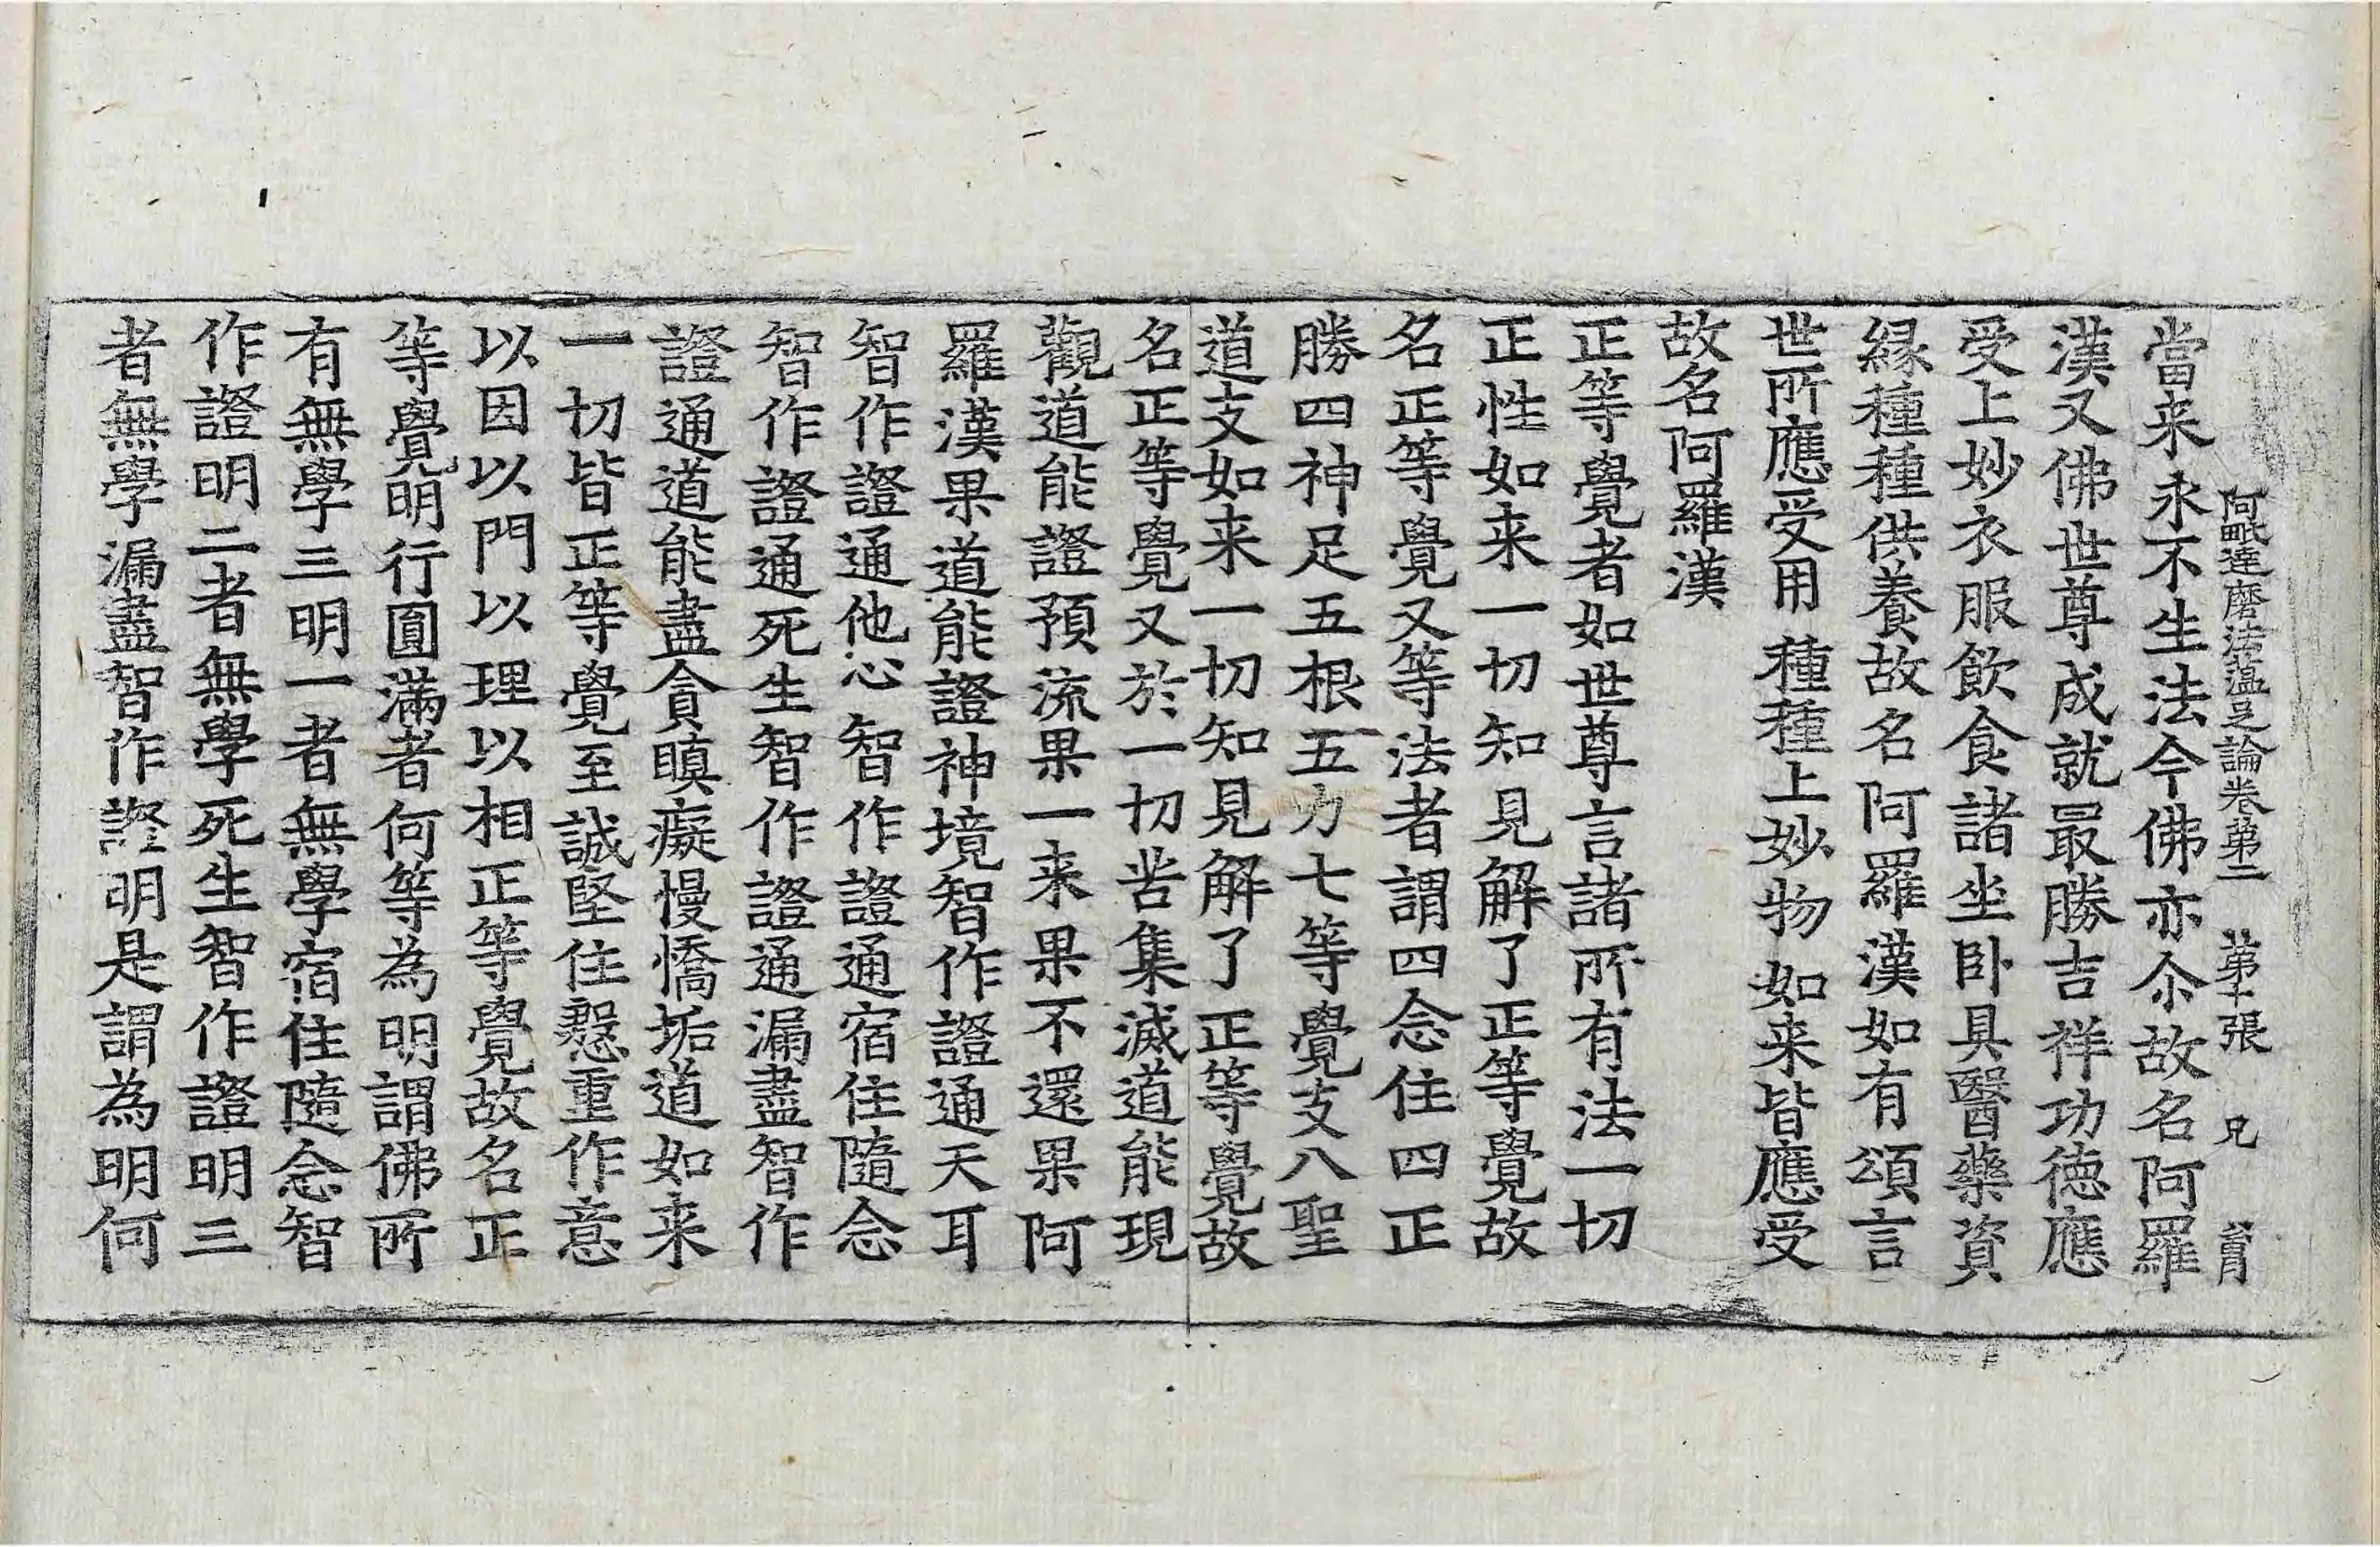 阿毗達磨法蘊足論卷第二 第十張 兄
當来永不生法今佛亦尒故名阿羅
漢又佛世尊成就最勝吉祥功德應
受上妙衣服飲食諸坐卧具醫藥資
緣種種供養故名阿羅漢如有頌言
世所應受用 種種上妙物 如来皆應受
故名阿羅漢
正等覺者如世尊言諸所有法一切
正性如来一切知見解了正等覺故
名正等覺又等法者謂四念住四正
勝四神足五根五力七等覺支八聖
道支如来一切知見解了正等覺故
名正等覺又於一切苦集滅道能現
觀道能證預流果一来果不還果阿
羅漢果道能證神境智作證通天耳
智作證通他心智作證通宿住隨念
智作證通死生智作證通漏盡智作
證通道能盡貪瞋癡慢憍垢道如来
一切皆正等覺至誠堅住慇重作意
以因以門以理以相正等覺故名正
等覺明行圓滿者何等為明謂佛所
有無學三明一者無學宿住隨念智
作證明二者無學死生智作證明三
者無學漏盡智作證明是謂為明何